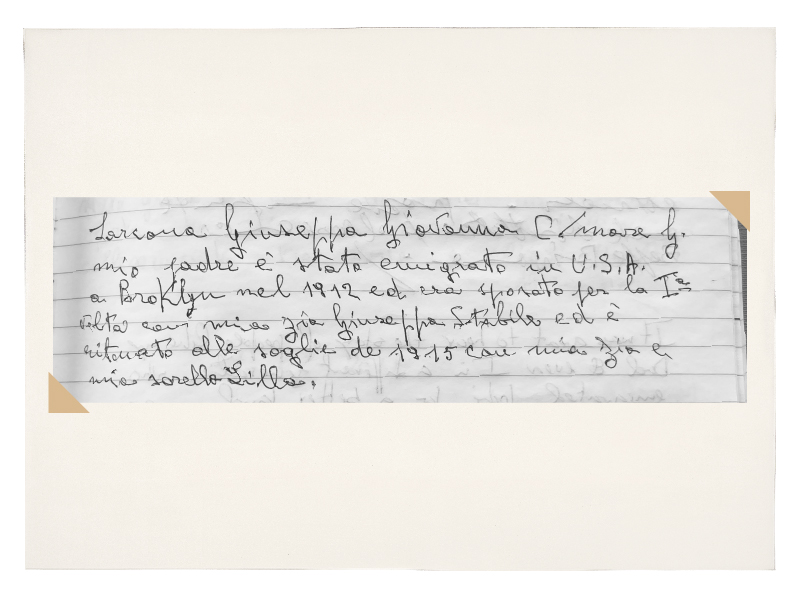 Sarcona Giuseppa Giovanna C/mare G.
mio padre è stato emigrato in U.S.A.
a BroKlyn nel 1912 ed era sposato per la Iª
volta con mia zia Giuseppa Stabile ed è
ritornato alle soglie de 1915 con mia zia e
mia sorella Lilla.